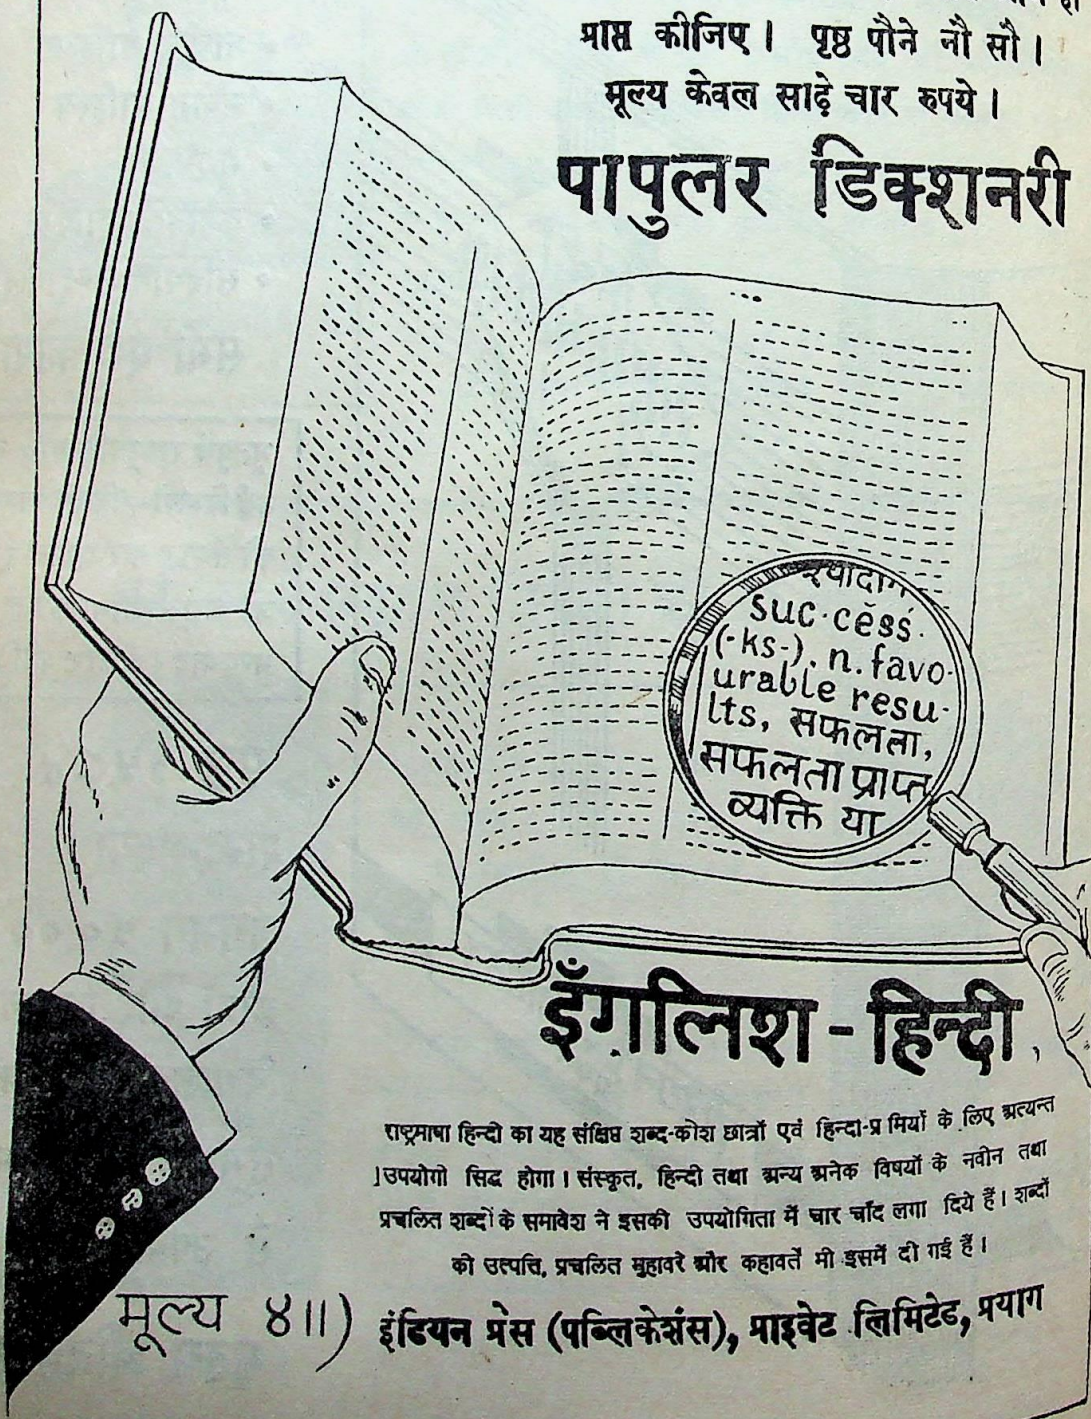 प्राप्त कीजिए। पृष्ठ पौने नौ सौ।
मूल्य केवल साढ़े चार रुपये।
पापुलर डिक्शनरी
suc·cĕsś·
(-ks-). n. favo-
urable resu-
lts, सफलता,
सफलता प्राप्त
व्यक्ति या
इँगलिश - हिन्दी
राष्ट्रभाषा हिन्दी का यह संक्षिप्त शब्द-कोश छात्रों एवं हिन्दी-प्रेमियों के लिए अत्यन्त
उपयोगी सिद्ध होगा। संस्कृत, हिन्दी तथा अन्य अनेक विषयों के नवीन तथा
प्रचलित शब्दों के समावेश ने इसकी उपयोगिता में चार चाँद लगा दिये हैं। शब्दों
की उत्पत्ति, प्रचलित मुहावरे और कहावतें भी इसमें दी गई हैं।
मूल्य ४॥) इंडियन प्रेस (पब्लिकेशंस), प्राइवेट लिमिटेड, प्रयाग